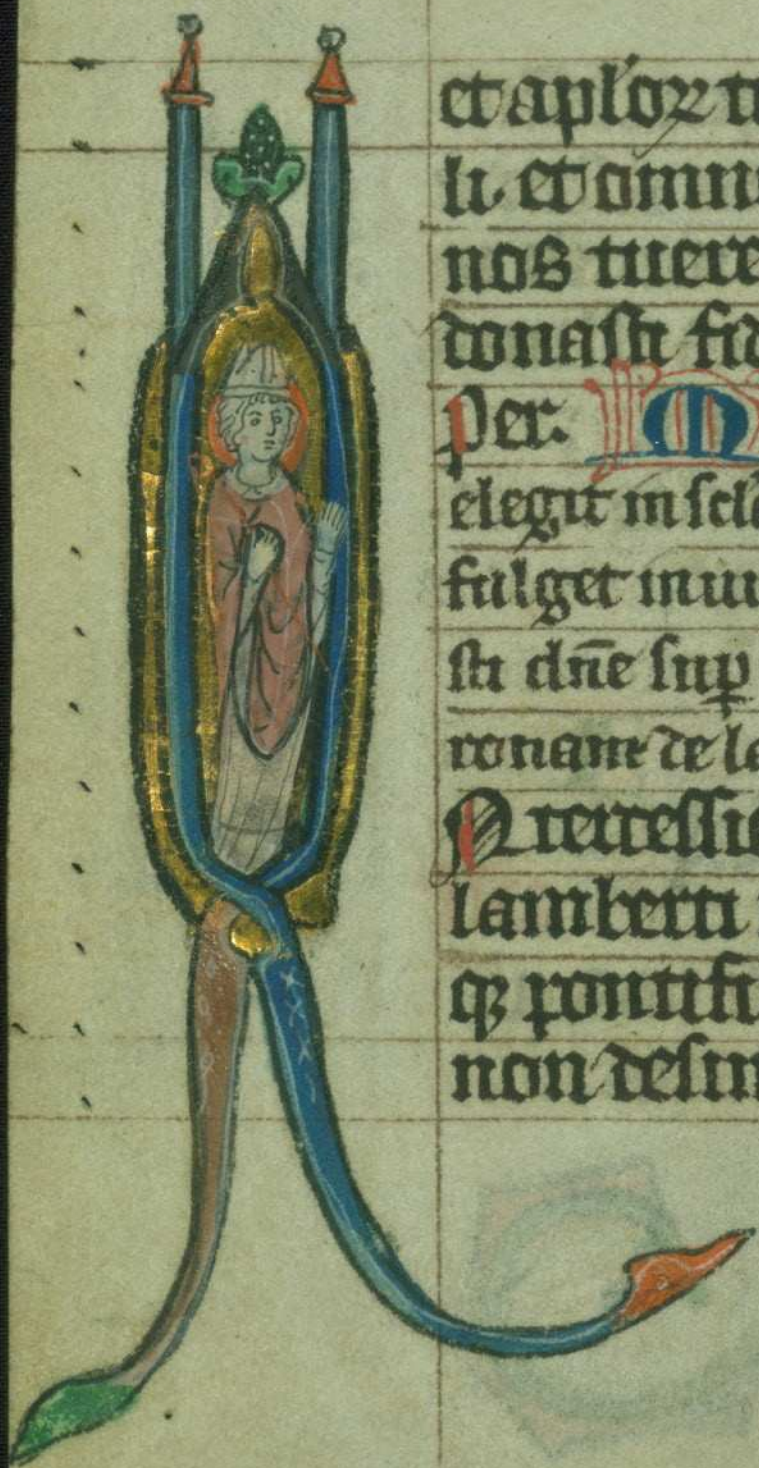 et aplōꝝ tu
li et omni
nos tuere
donasti fid
Per. M
elegit in scl
fulget in ui
sti dn̄e suꝑ
ronam de la
Intercessio
lamberti
qꝫ pontifi
non desin